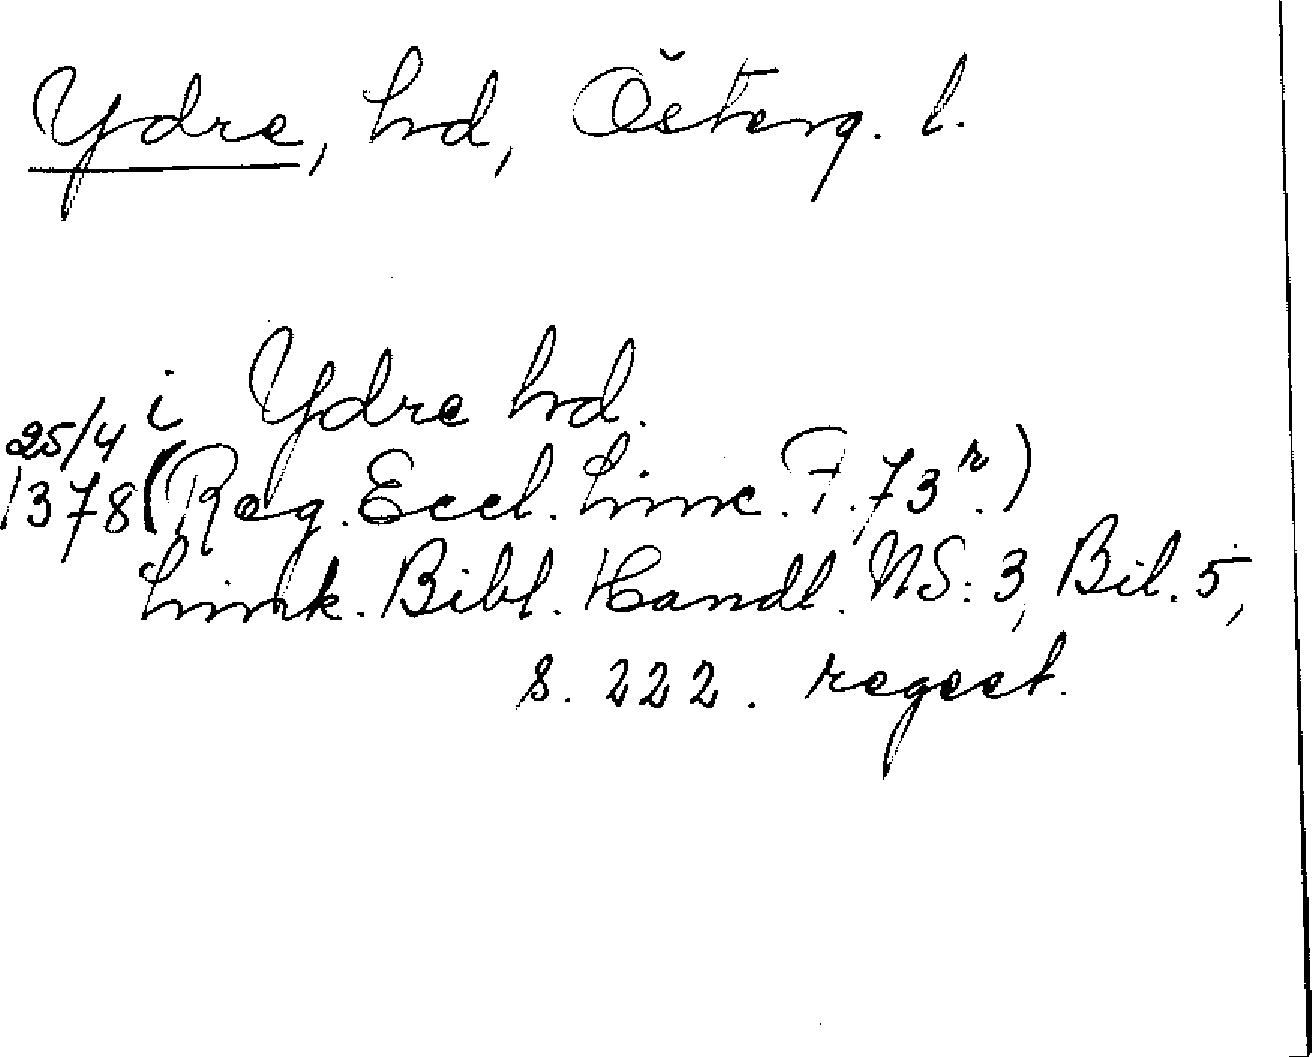 Ydre, hd, Österg. l.
i Ydre hd.
25/4
1378 (Reg. Eccl. Linc. F. 73r.)
Link. Bibl. Handl. NS: 3, Bil. 5,
s. 222. regest.